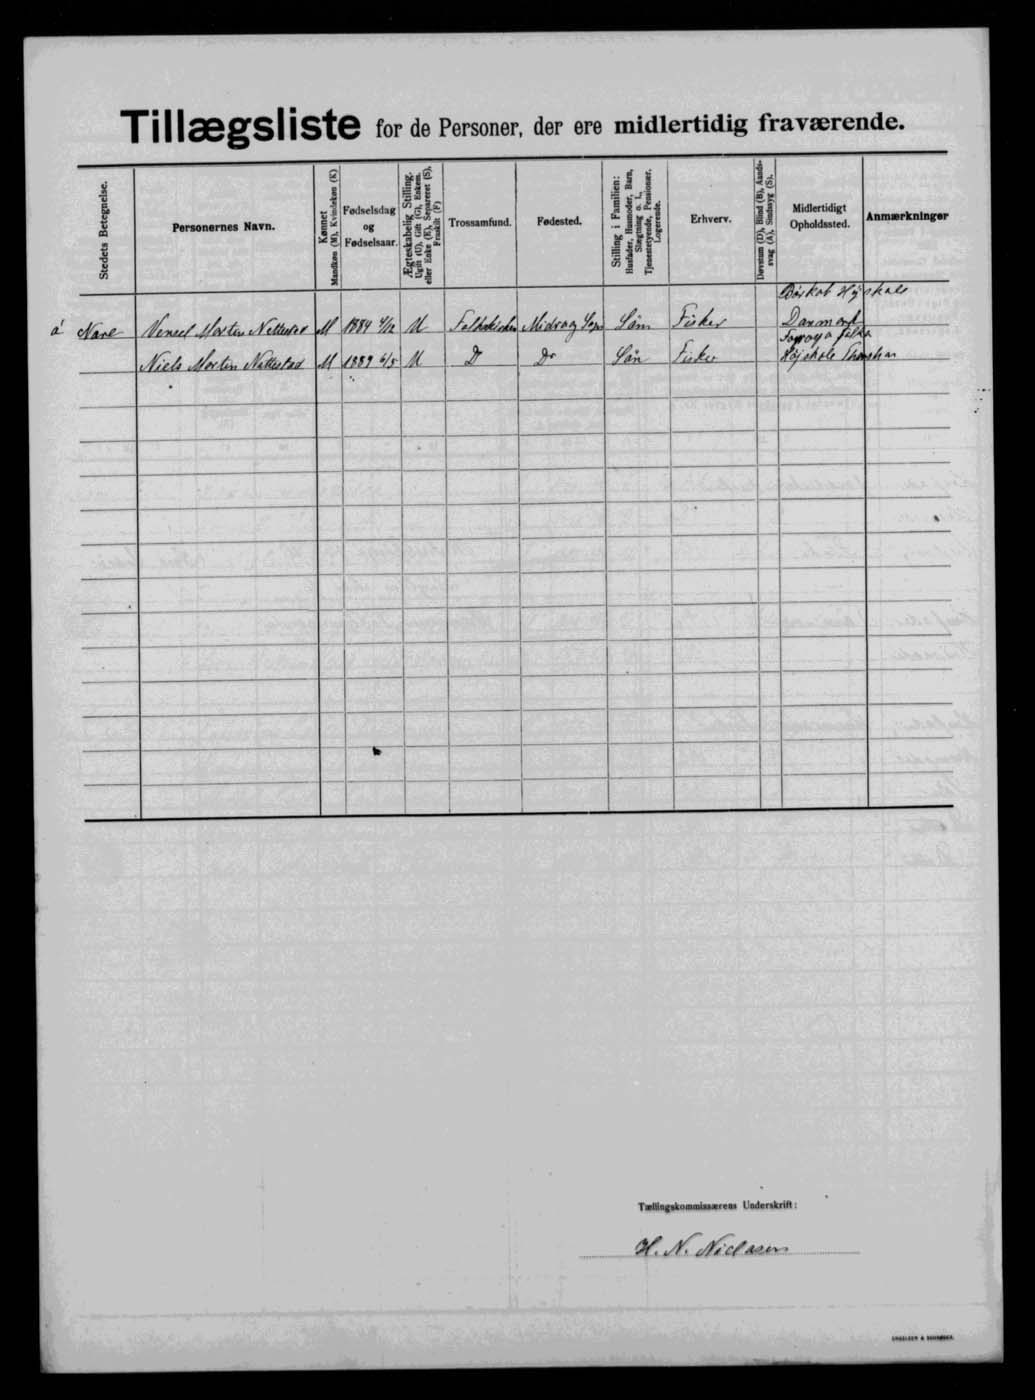 Tillægsliste for de Personer, der ere midlertidig fraværende.
Stedets Betegnelse.
Personernes Navn.
Kønnet
Mandkøn (M), Kvindekøn (K)
Fødselsdag
og
Fødselsaar.
Ægteskabelig Stilling.
Ugift (U), Gift (G), Enkem.
eller Enke (E), Separeret (S),
Fraskilt (F)
Trossamfund.
Fødested.
Stilling i Familien:
Husfader, Husmoder, Barn,
Slægtning o. l.,
Tjenestetyende, Pensionær,
Logerende.
Erhverv.
Døvstum (D), Blind (B), Aands-
svag (A), Sindssyg (S).
Midlertidigt
Opholdssted.
Anmærkninger
Højskole
á Morten M 1884 U Folkekirken Midvaag Sogn Søn Fisker Danmark
Niels Morten Nattestad M 1889 6/5 U Do Do Søn Fisker Højskole Thorshavn
Tællingskommissærens Underskrift:
H. N. Niclasen